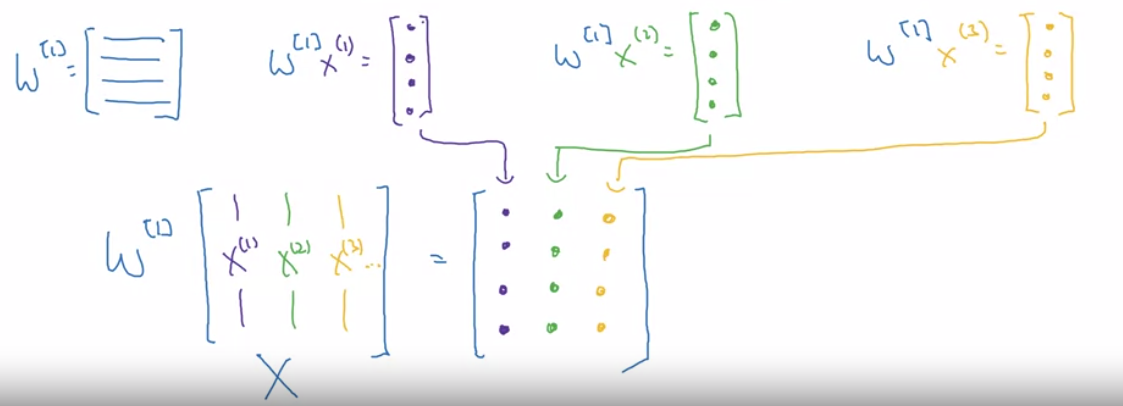 W^[1] = [ ] W^[1] x^(1) = [ ] W^[1] x^(2) = [ ] W^[1] x^(3) = [ ]
W^[1] [ x^(1) x^(2) x^(3) ... ] = [ ]
X